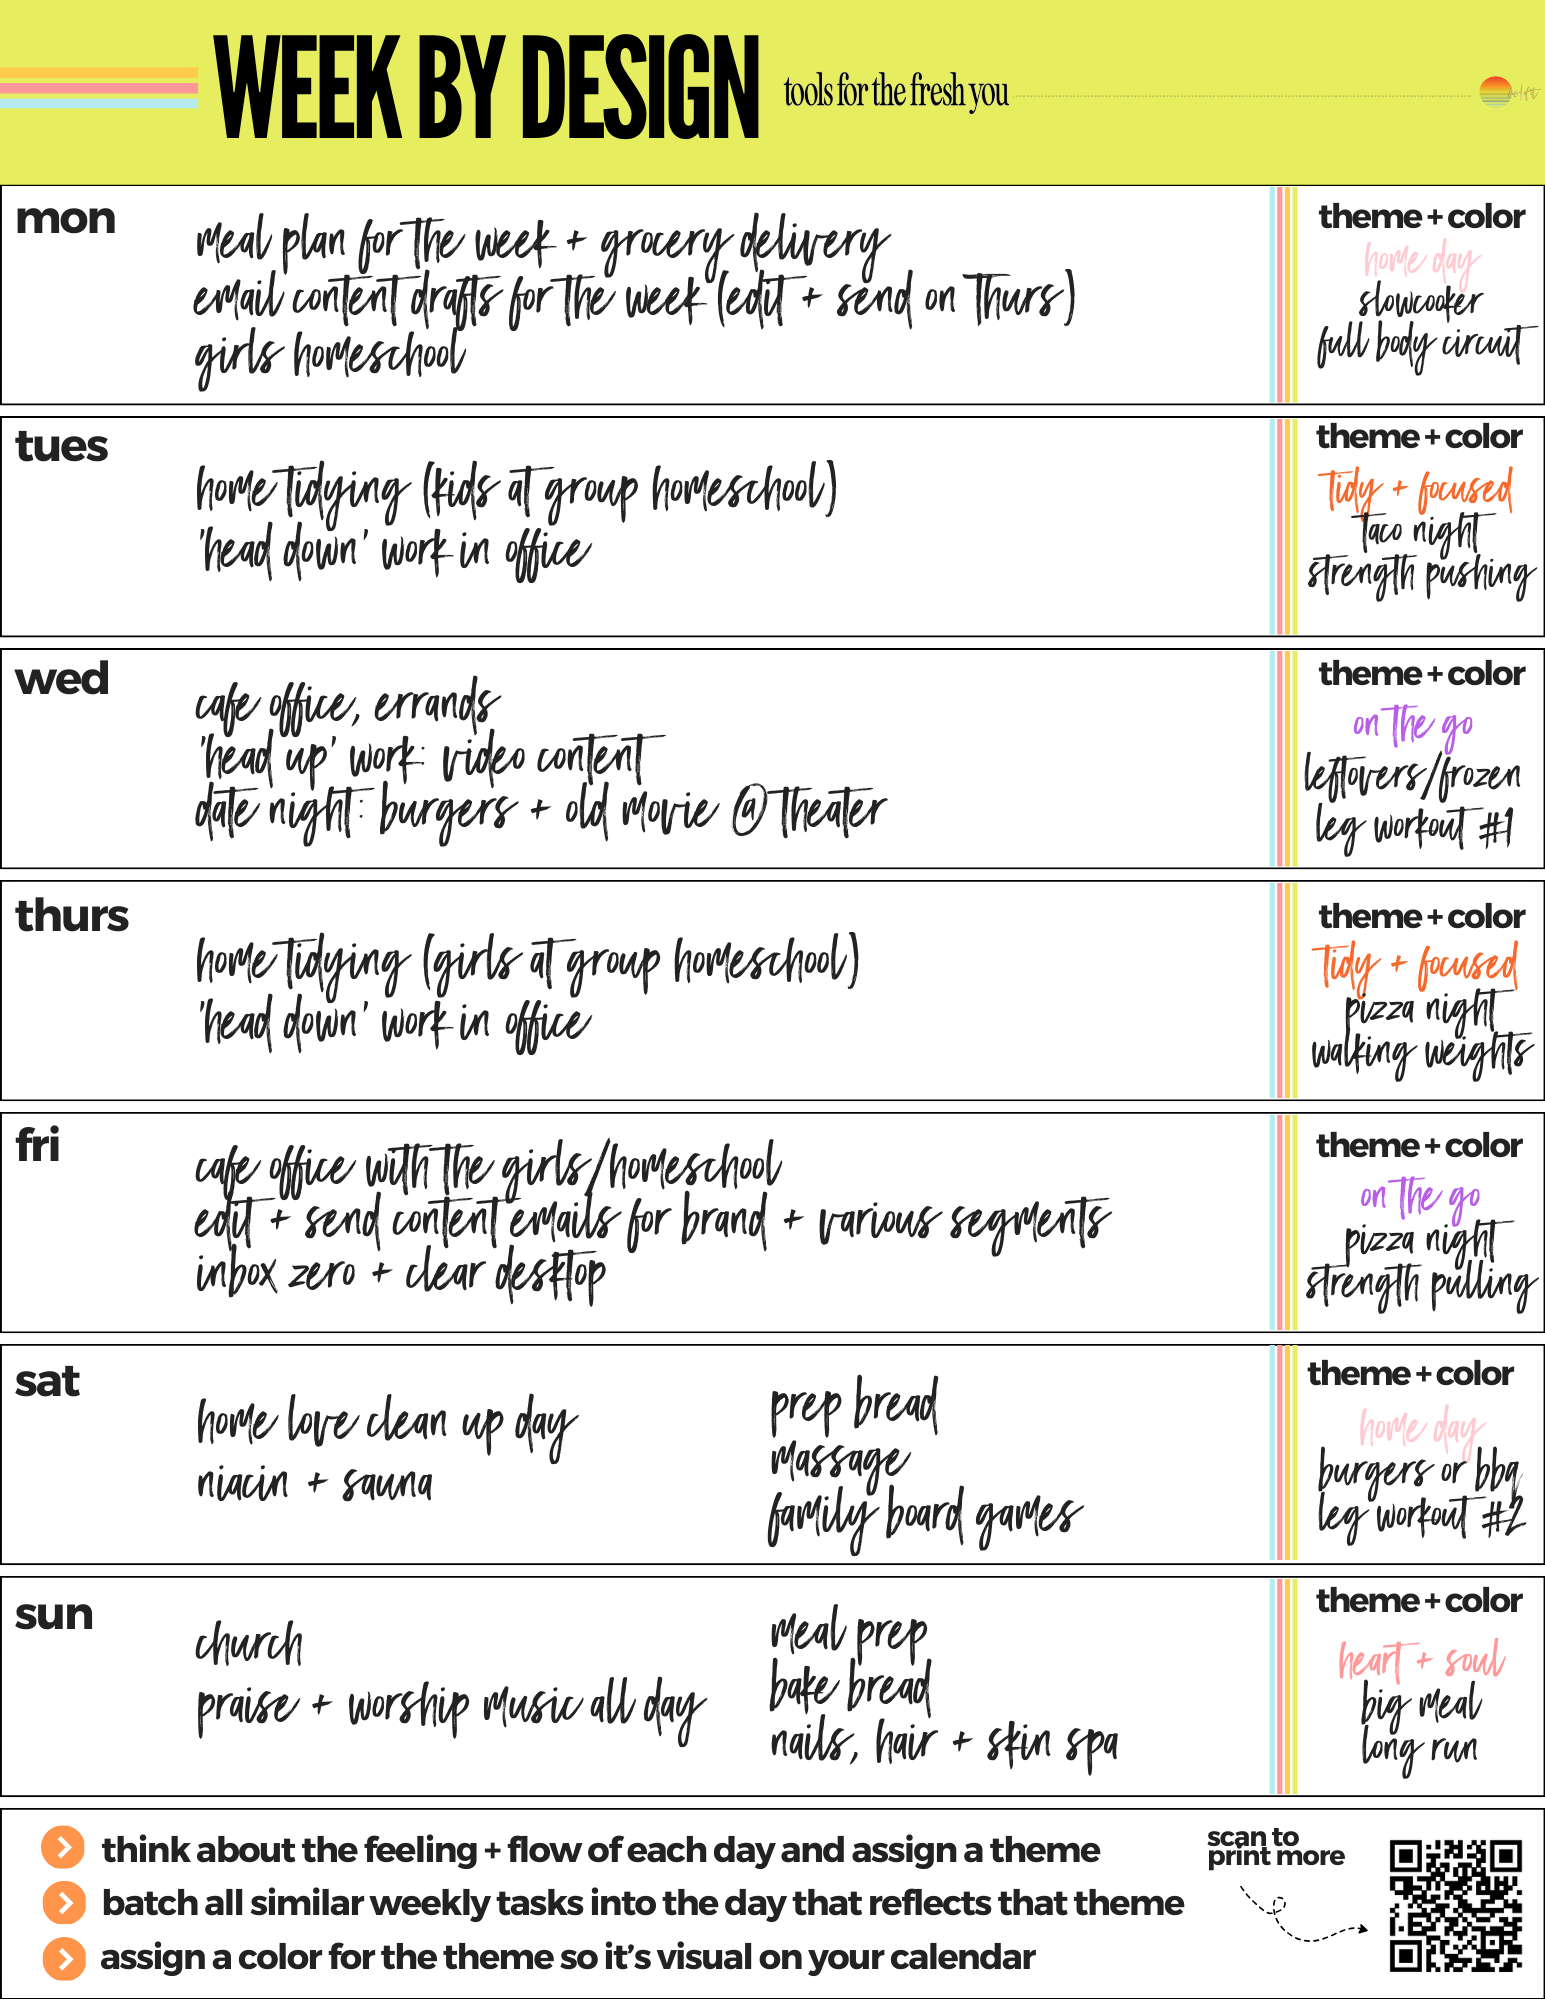 WEEK BY DESIGN
tools for the fresh you
mon
meal plan for the week + grocery delivery
email content drafts for the week (edit + send on Thurs)
girls homeschool
theme + color
home day
slowcooker
full body circuit
tues
home tidying (kids at group homeschool)
'head down' work in office
theme + color
tidy + focused
taco night
strength pushing
wed
cafe office, errands
'head up' work: video content
date night: burgers + old movie @ theater
theme + color
on the go
leftovers/frozen
leg workout #1
thurs
home tidying (girls at group homeschool)
'head down' work in office
theme + color
tidy + focused
pizza night
walking weights
fri
cafe office with the girls/homeschool
edit + send content emails for brand + various segments
inbox zero + clear desktop
theme + color
on the go
pizza night
strength pulling
sat
home love clean up day
niacin + sauna
prep bread
massage
family board games
theme + color
home day
burgers or bbq
leg workout #2
sun
church
praise + worship music all day
meal prep
bake bread
nails, hair + skin spa
theme + color
heart + soul
big meal
long run
think about the feeling + flow of each day and assign a theme
batch all similar weekly tasks into the day that reflects that theme
assign a color for the theme so it's visual on your calendar
scan to
print more